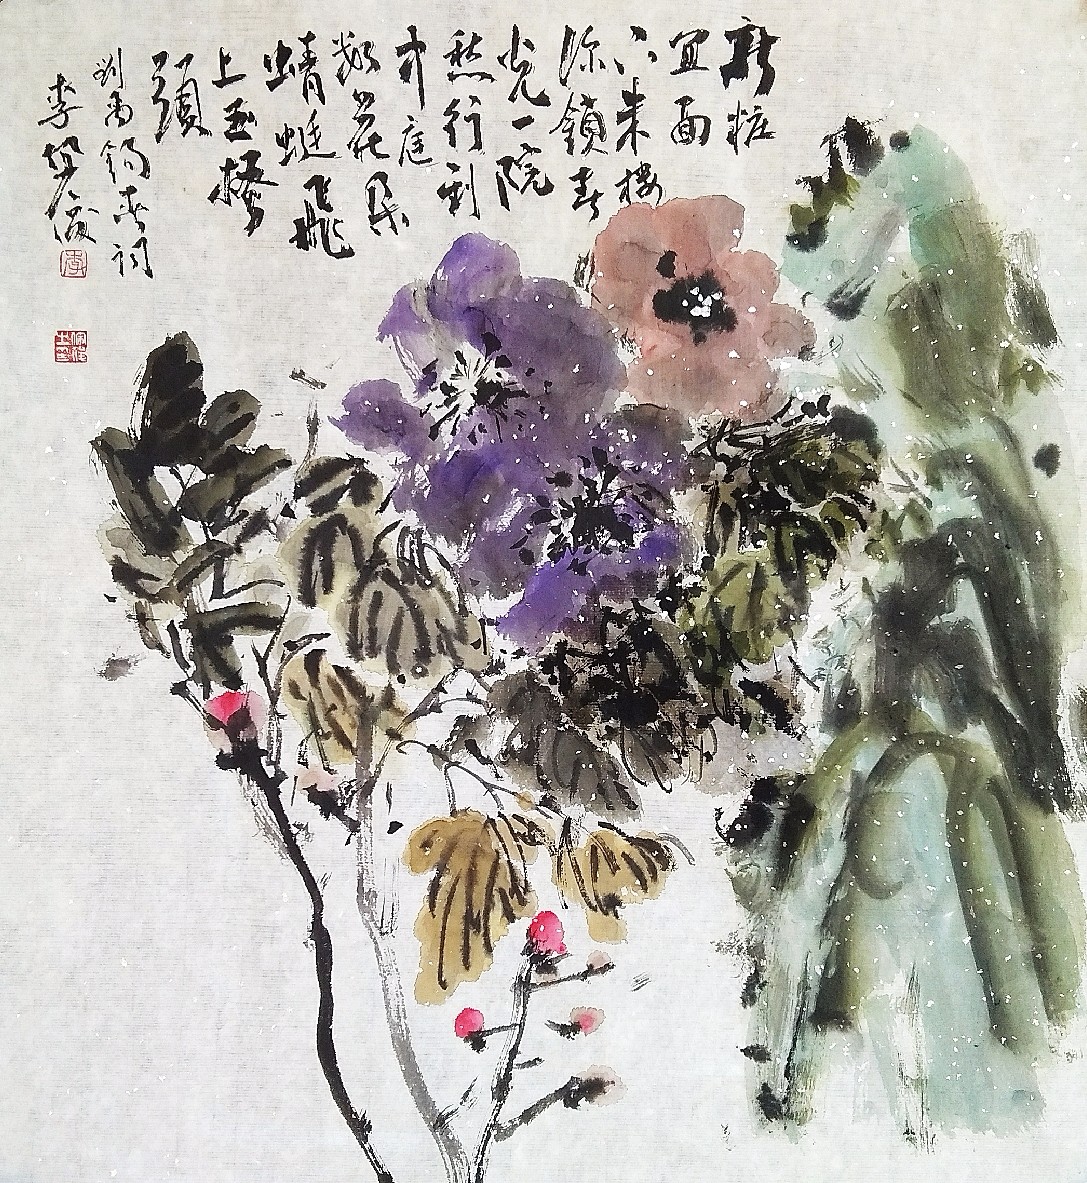 新粧
宜面
下朱樓
深鎖春
光一院
愁行到
中庭
數花朵
蜻蜓飛
上玉搔
頭
劉禹錫春詞
李